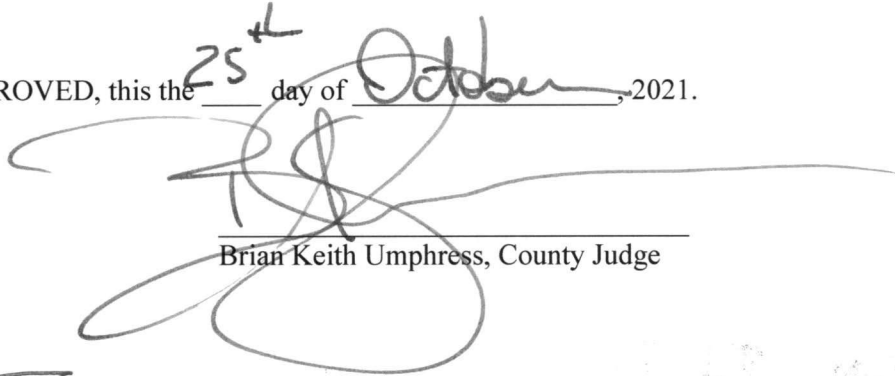 ROVED, this the 25th day of October, 2021.
Brian Keith Umphress, County Judge